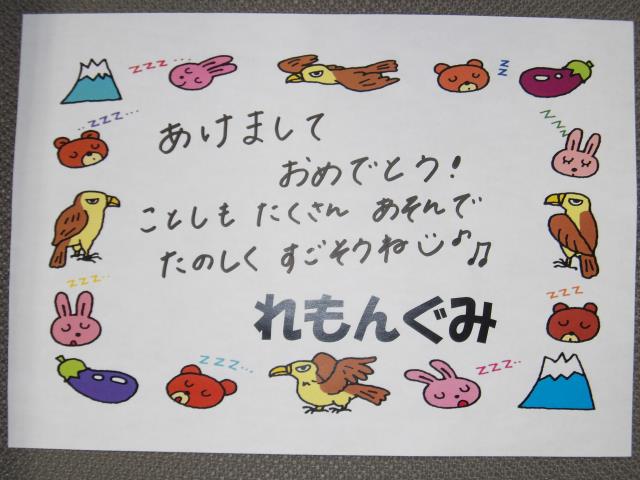 あけまして
おめでとう!
ことしも たくさん あそんで
たのしく すごそうね
れもんぐみ
zzz...
zzz...
zz
zzz
zzz..
zzz
zzz...
zzz..